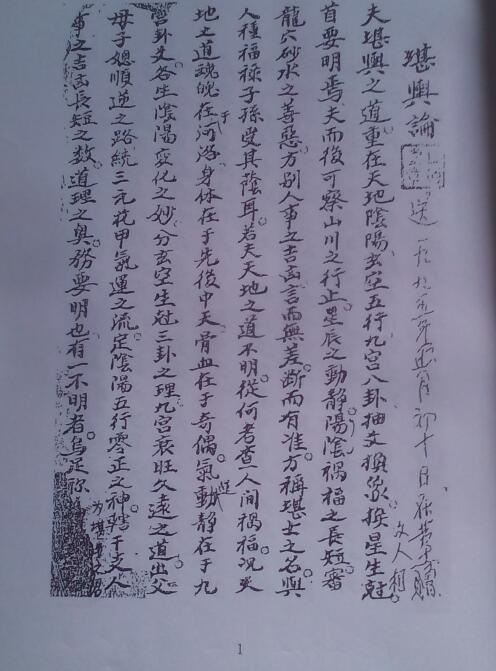 堪輿論
夫堪輿之道重在天地陰陽玄空五行九宮八卦抽爻換象。挨星生尅
首要明焉。夫而後可察山川之行止。星辰之動靜。陰陽禍福之長短審
龍穴砂水之善惡。方別人事之吉凶言而無差。斷而有准方稱堪士之名輿
人種福祿子孫受其蔭耳。若夫天地之道不明。從何考查人間禍福。況夫
地之道魂魄在于河洛身体在于先後中天骨血在于奇偶。氣運動靜在于九
宮卦爻各生陰陽變化之妙。分玄空生尅三卦之理九宮衰旺久遠之道出父
母子媳順逆之路統三元花甲氣運之流定陰陽五行零正之神。干支人
事之吉凶長短之数。道理之奥。務要明也有一不明者。烏足称
1